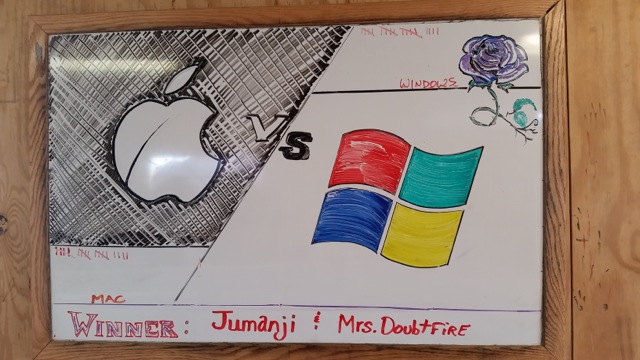 WINDOWS
VS
MAC
WINNER: Jumanji & Mrs. DoubtFire